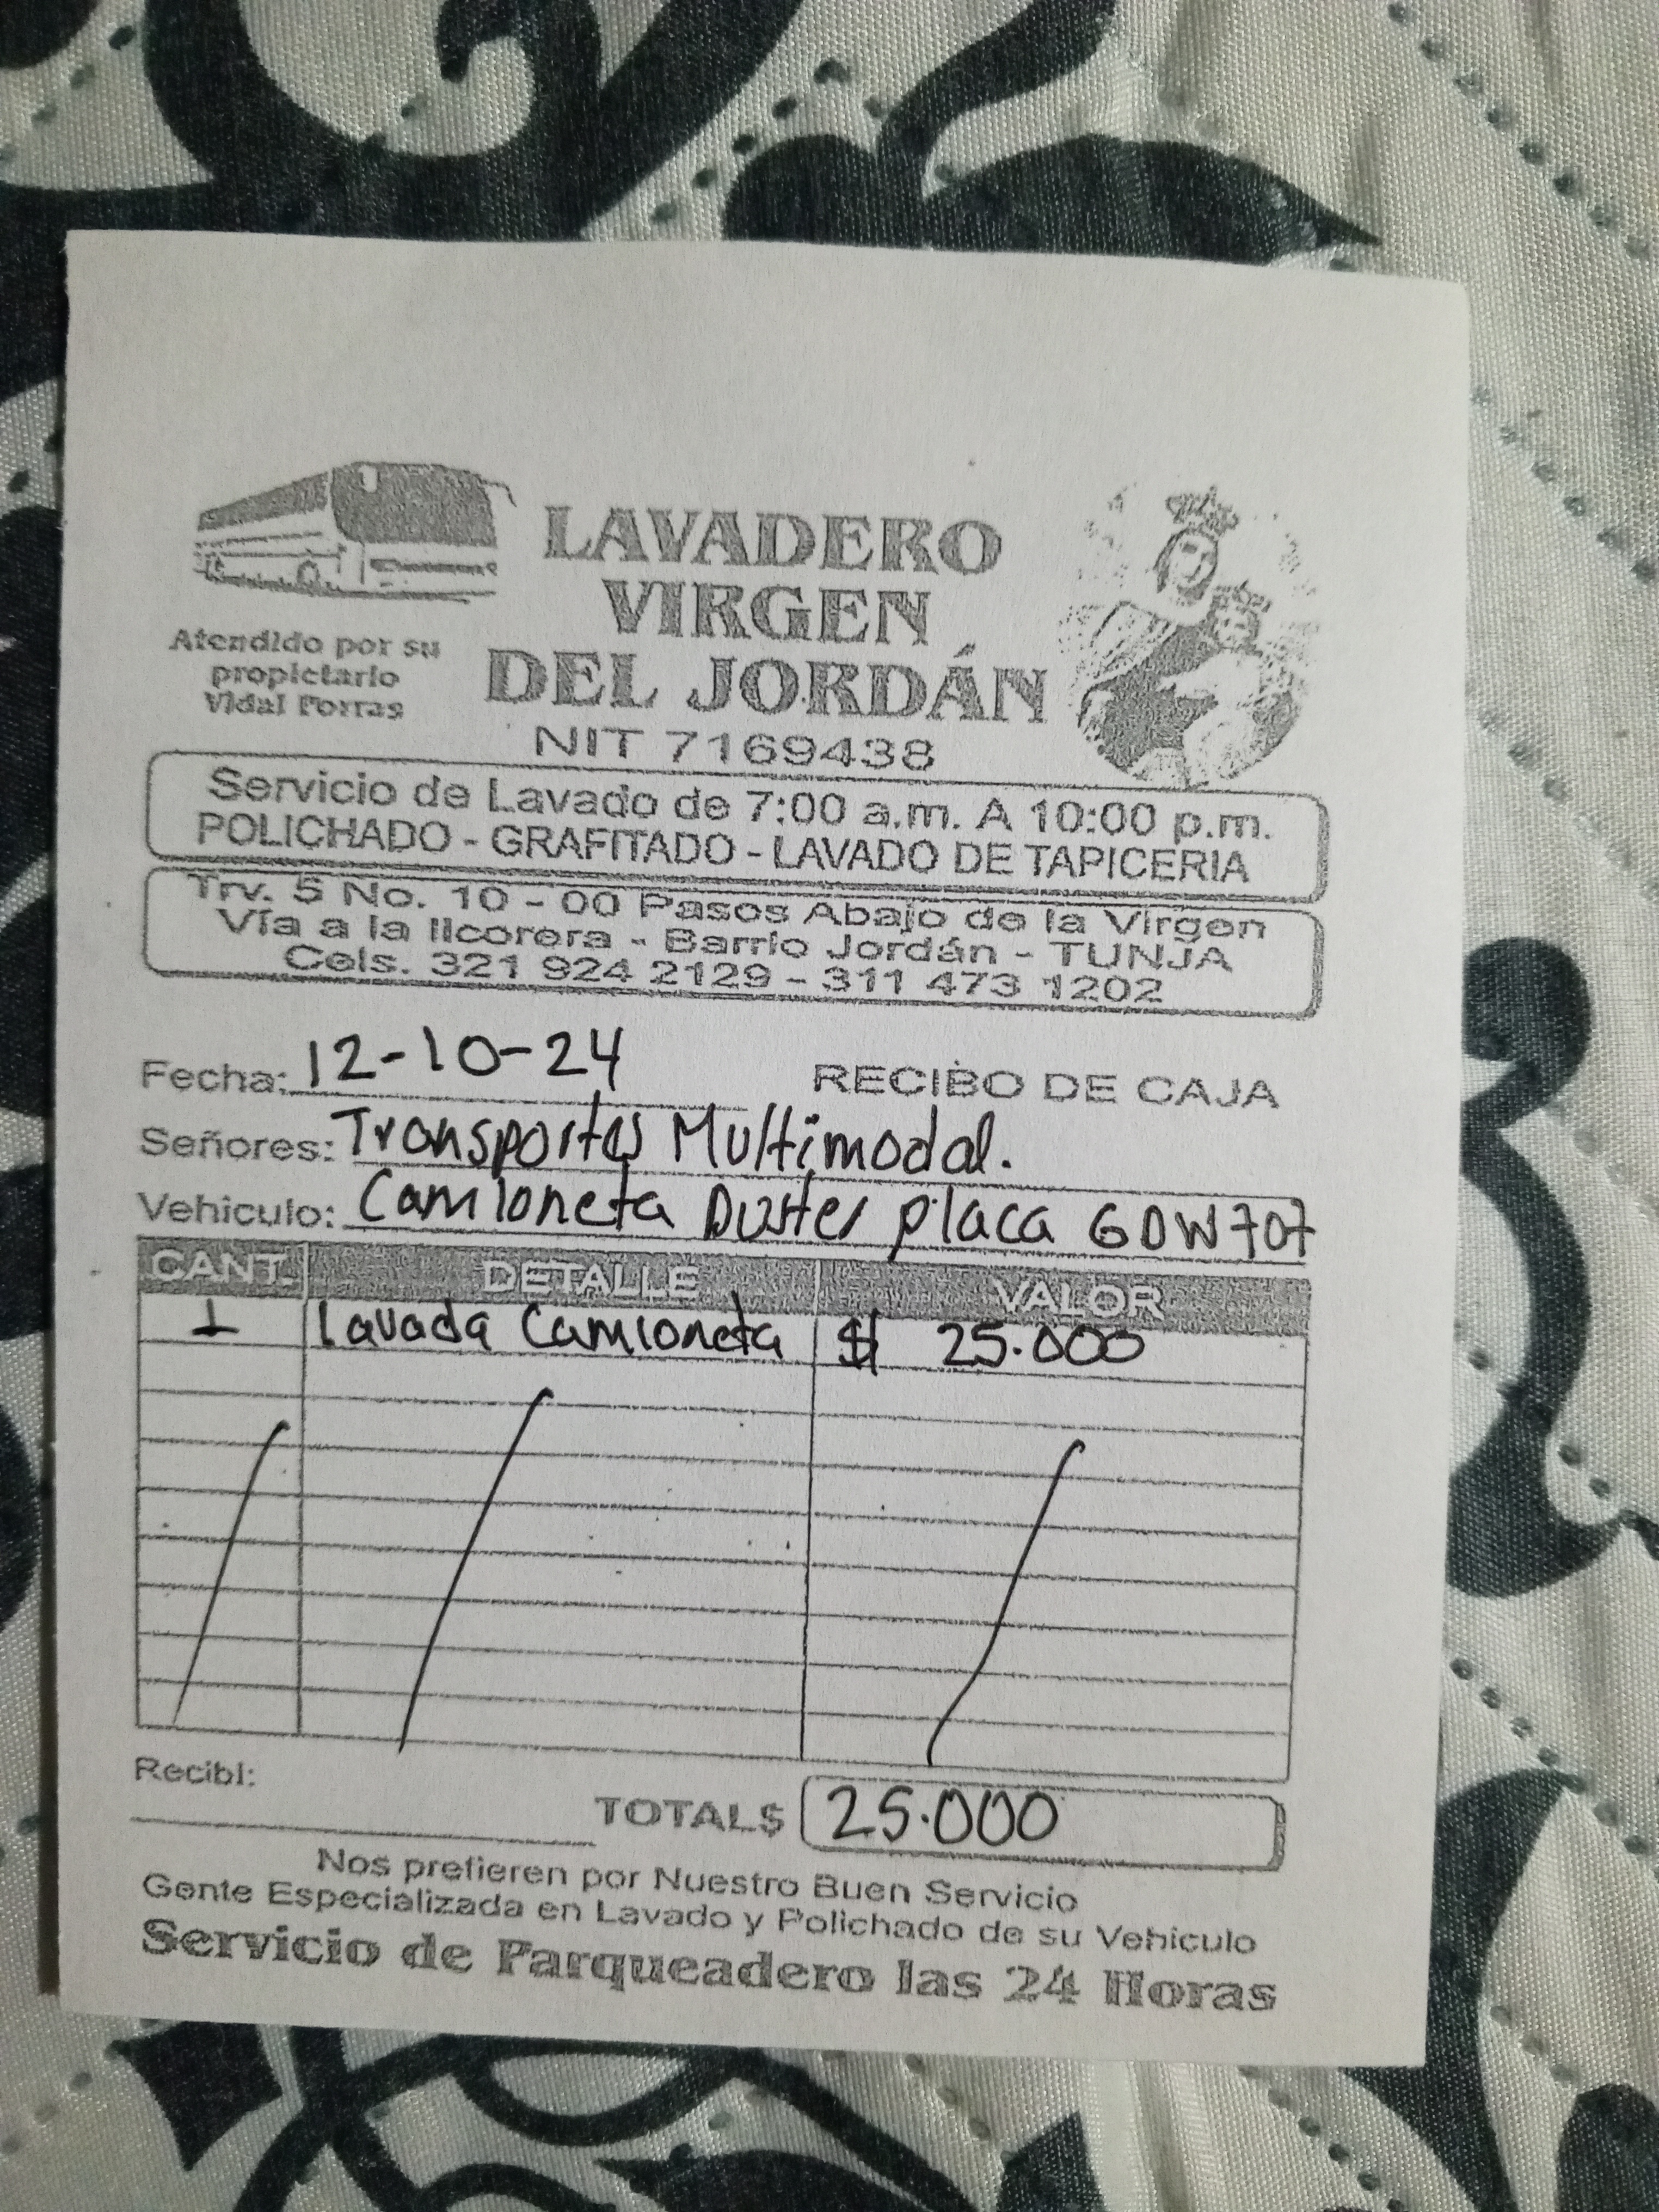 LAVADERO
VIRGEN
DEL JORDÁN
Atendido por su
propietario
Vidal Porras
NIT 7169438
Servicio de Lavado de 7:00 a.m. A 10:00 p.m.
POLICHADO - GRAFITADO - LAVADO DE TAPICERIA
Trv. 5 No. 10 - 00 Pasos Abajo de la Virgen
Vía a la licorera - Barrio Jordán - TUNJA
Cels. 321 924 2129 - 311 473 1202
Fecha: 12-10-24 RECIBO DE CAJA
Señores: Transportes Multimodal.
Vehiculo: Camioneta Duster placa GDW707
CANT. DETALLE VALOR
1 lavada Camioneta $ 25.000
Recibí:
TOTAL$ 25.000
Nos prefieren por Nuestro Buen Servicio
Gente Especializada en Lavado y Polichado de su Vehiculo
Servicio de Parqueadero las 24 Horas